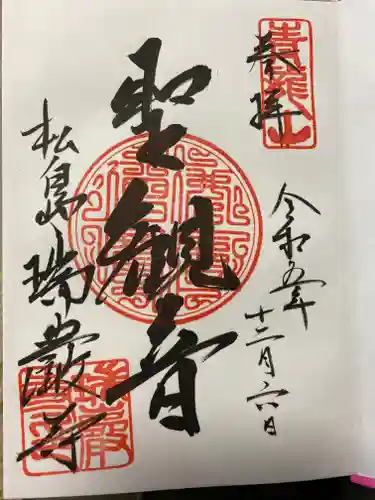 奉拝
青龍山
令和五年
十二月六日
聖観音
松島瑞巌寺